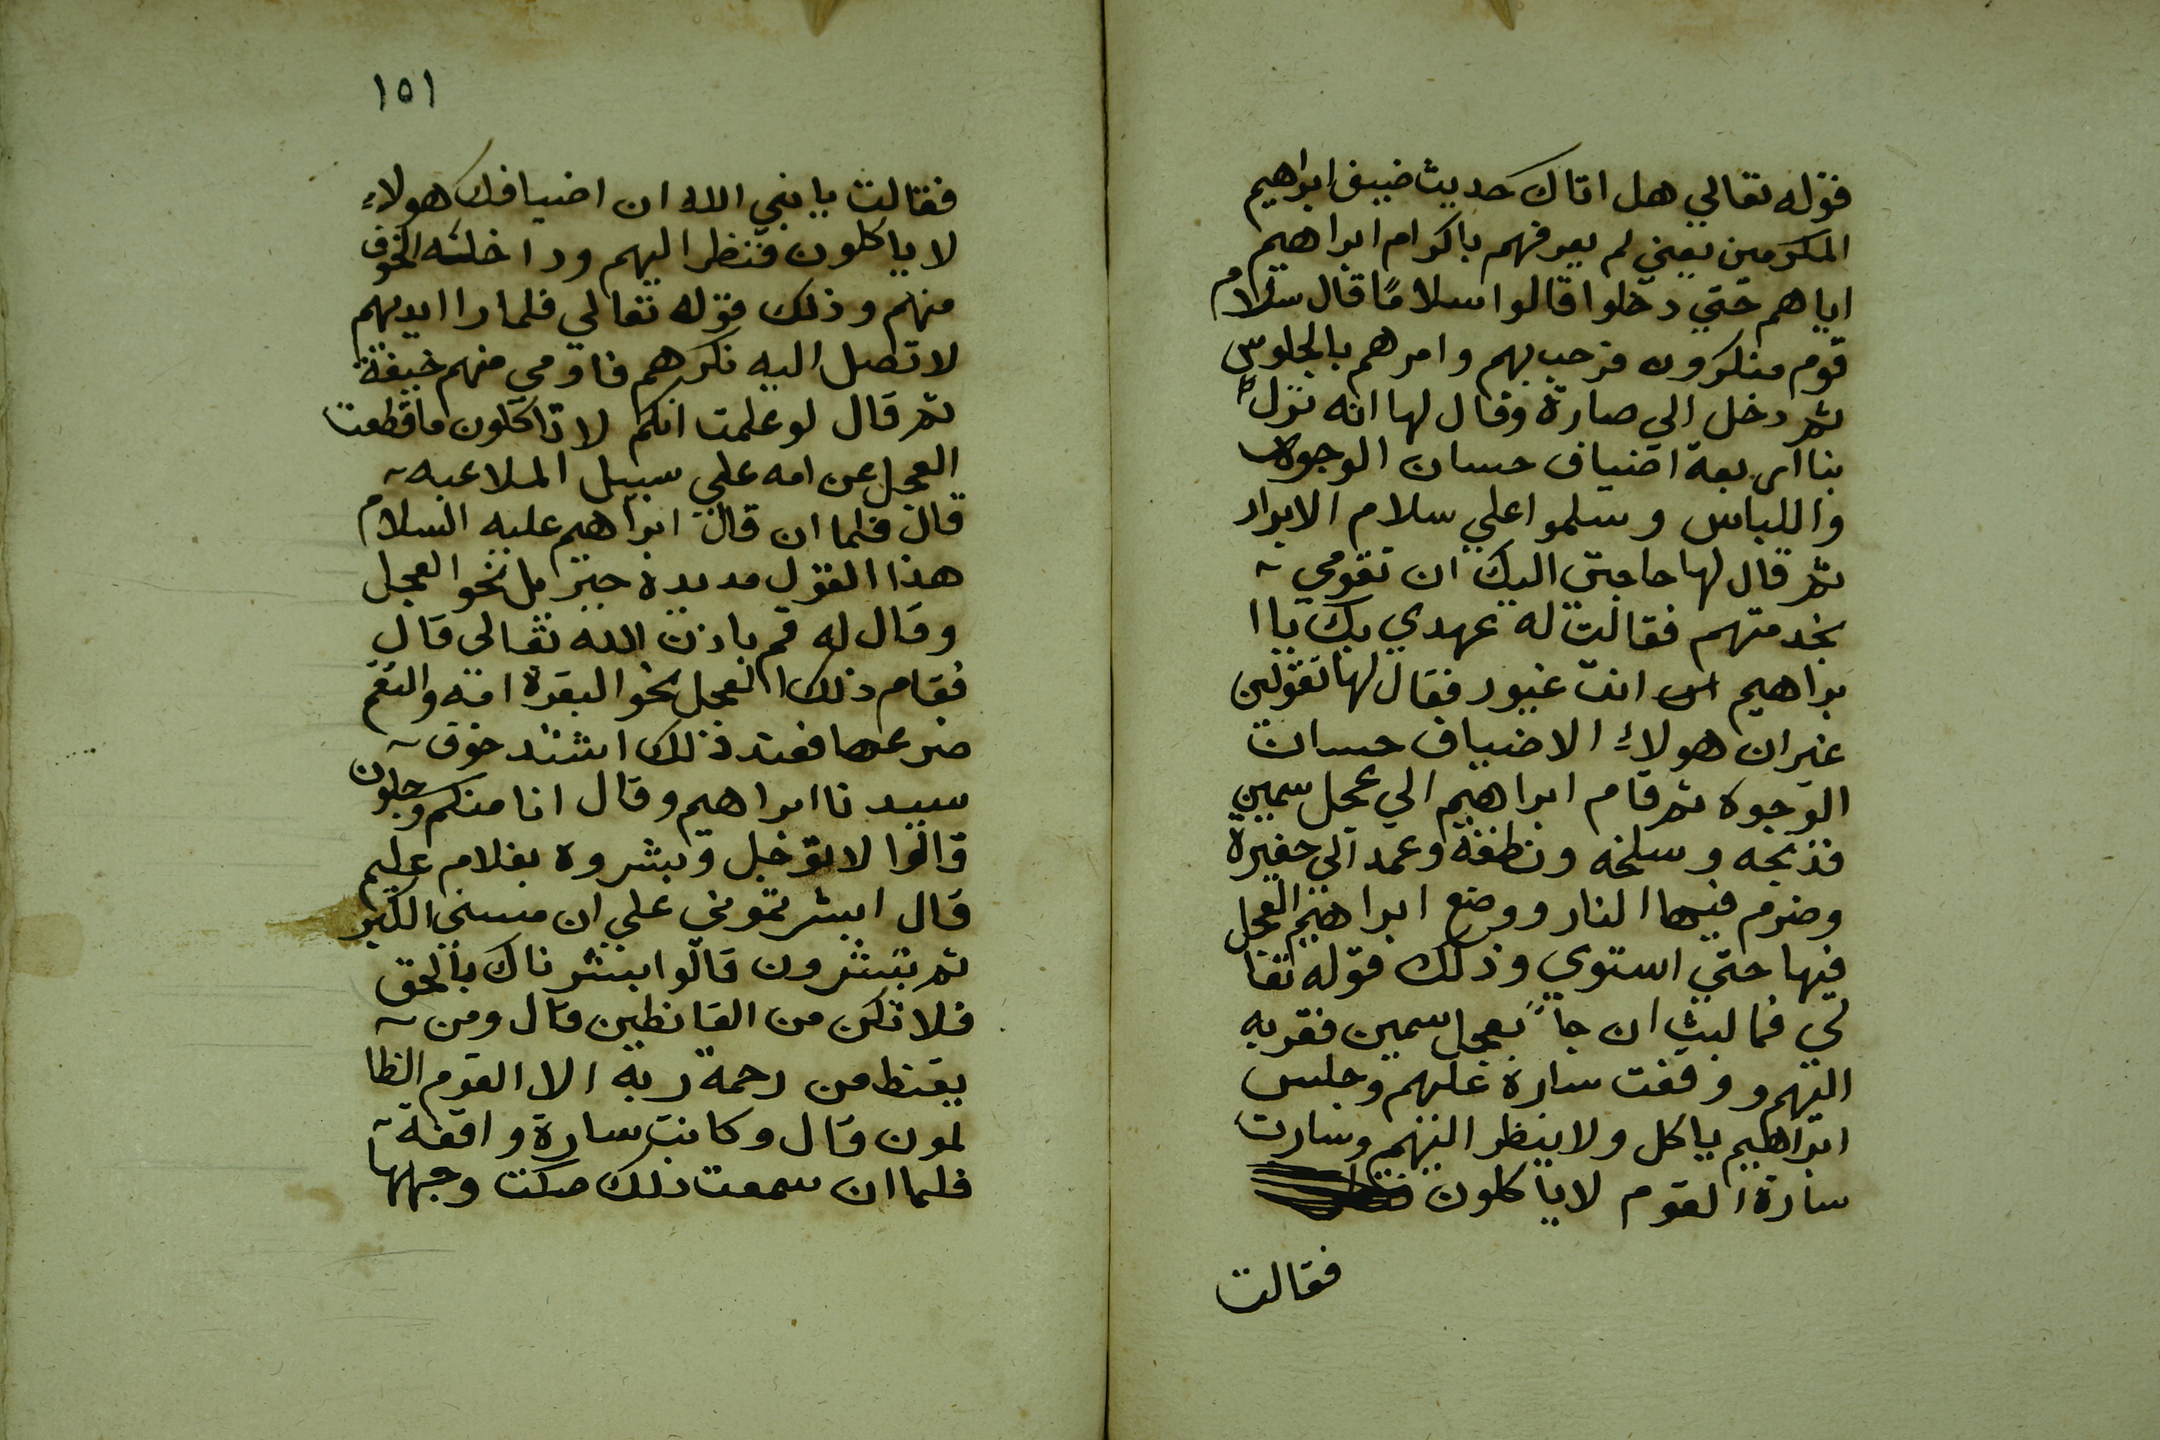 قوله تعالي هل اتاك حديث ضيف ابراهيم
المكرمين يعني لم يعرفهم باكرام ابراهيم
اياهم حتي دخلوا قالوا سلامًا قال سلام
قوم منكرون فرحب بهم وامرهم بالجلوس
ثم دخل الي صارة وقال لها انه نزل
بنا اربعة اضياف حسان الوجوه
واللباس وسلموا علي سلام الابرار
ثم قال لها حاجتي اليك ان تقومي
بخدمتهم فقالت له عهدي بك يا ا
براهيم انت غيور فقال لها تقولين
غيران هولاء الاضياف حسان
الوجوه ثم قام ابراهيم الي عجل سمين
فذبحه وسلخه ونظفه وعمد الي حفيرة
وضرم فيها النار ووضع ابراهيم العجل
فيها حتي استوي وذلك قوله تعا
لي فما لبث ان جاء بعجل سمين فقربه
اليهم ووقفت سارة عليهم وجلس
ابراهيم ياكل ولا ينظر اليهم وسارت
سارة القوم لا ياكلون
فقالت
١٥١
فقالت يا نبي الله ان اضيافك هولاء
لا ياكلون فنظر اليهم وداخلته الخوف
منهم وذلك قوله تعالي فلما را ايديهم
لا تصل اليه نكرهم فاومي منهم خيفة
ثم قال لو علمت انكم لا تاكلون ما قطعت
العجل عن امه علي سبيل الملاعبه
قال فلما ان قال ابراهيم عليه السلام
هذا القول مد يده جبريل نحو العجل
وقال له قم باذن الله تعالي قال
فقام ذلك العجل نحو البقرة امه والتقم
ضرعها فعند ذلك اشتد خوف
سيدنا ابراهيم وقال انا منكم وجلون
قالوا لا توجل وبشروه بغلام عليم
قال ابشرتموني علي ان مسني الكبر
ثم تبشرون قالوا بشرناك بالحق
فلا تكن من القانطين قال ومن
يقنط من رحمة ربه الا القوم الظا
لمون قال وكانت سارة واقفة
فلما ان سمعت ذلك صكت وجهها